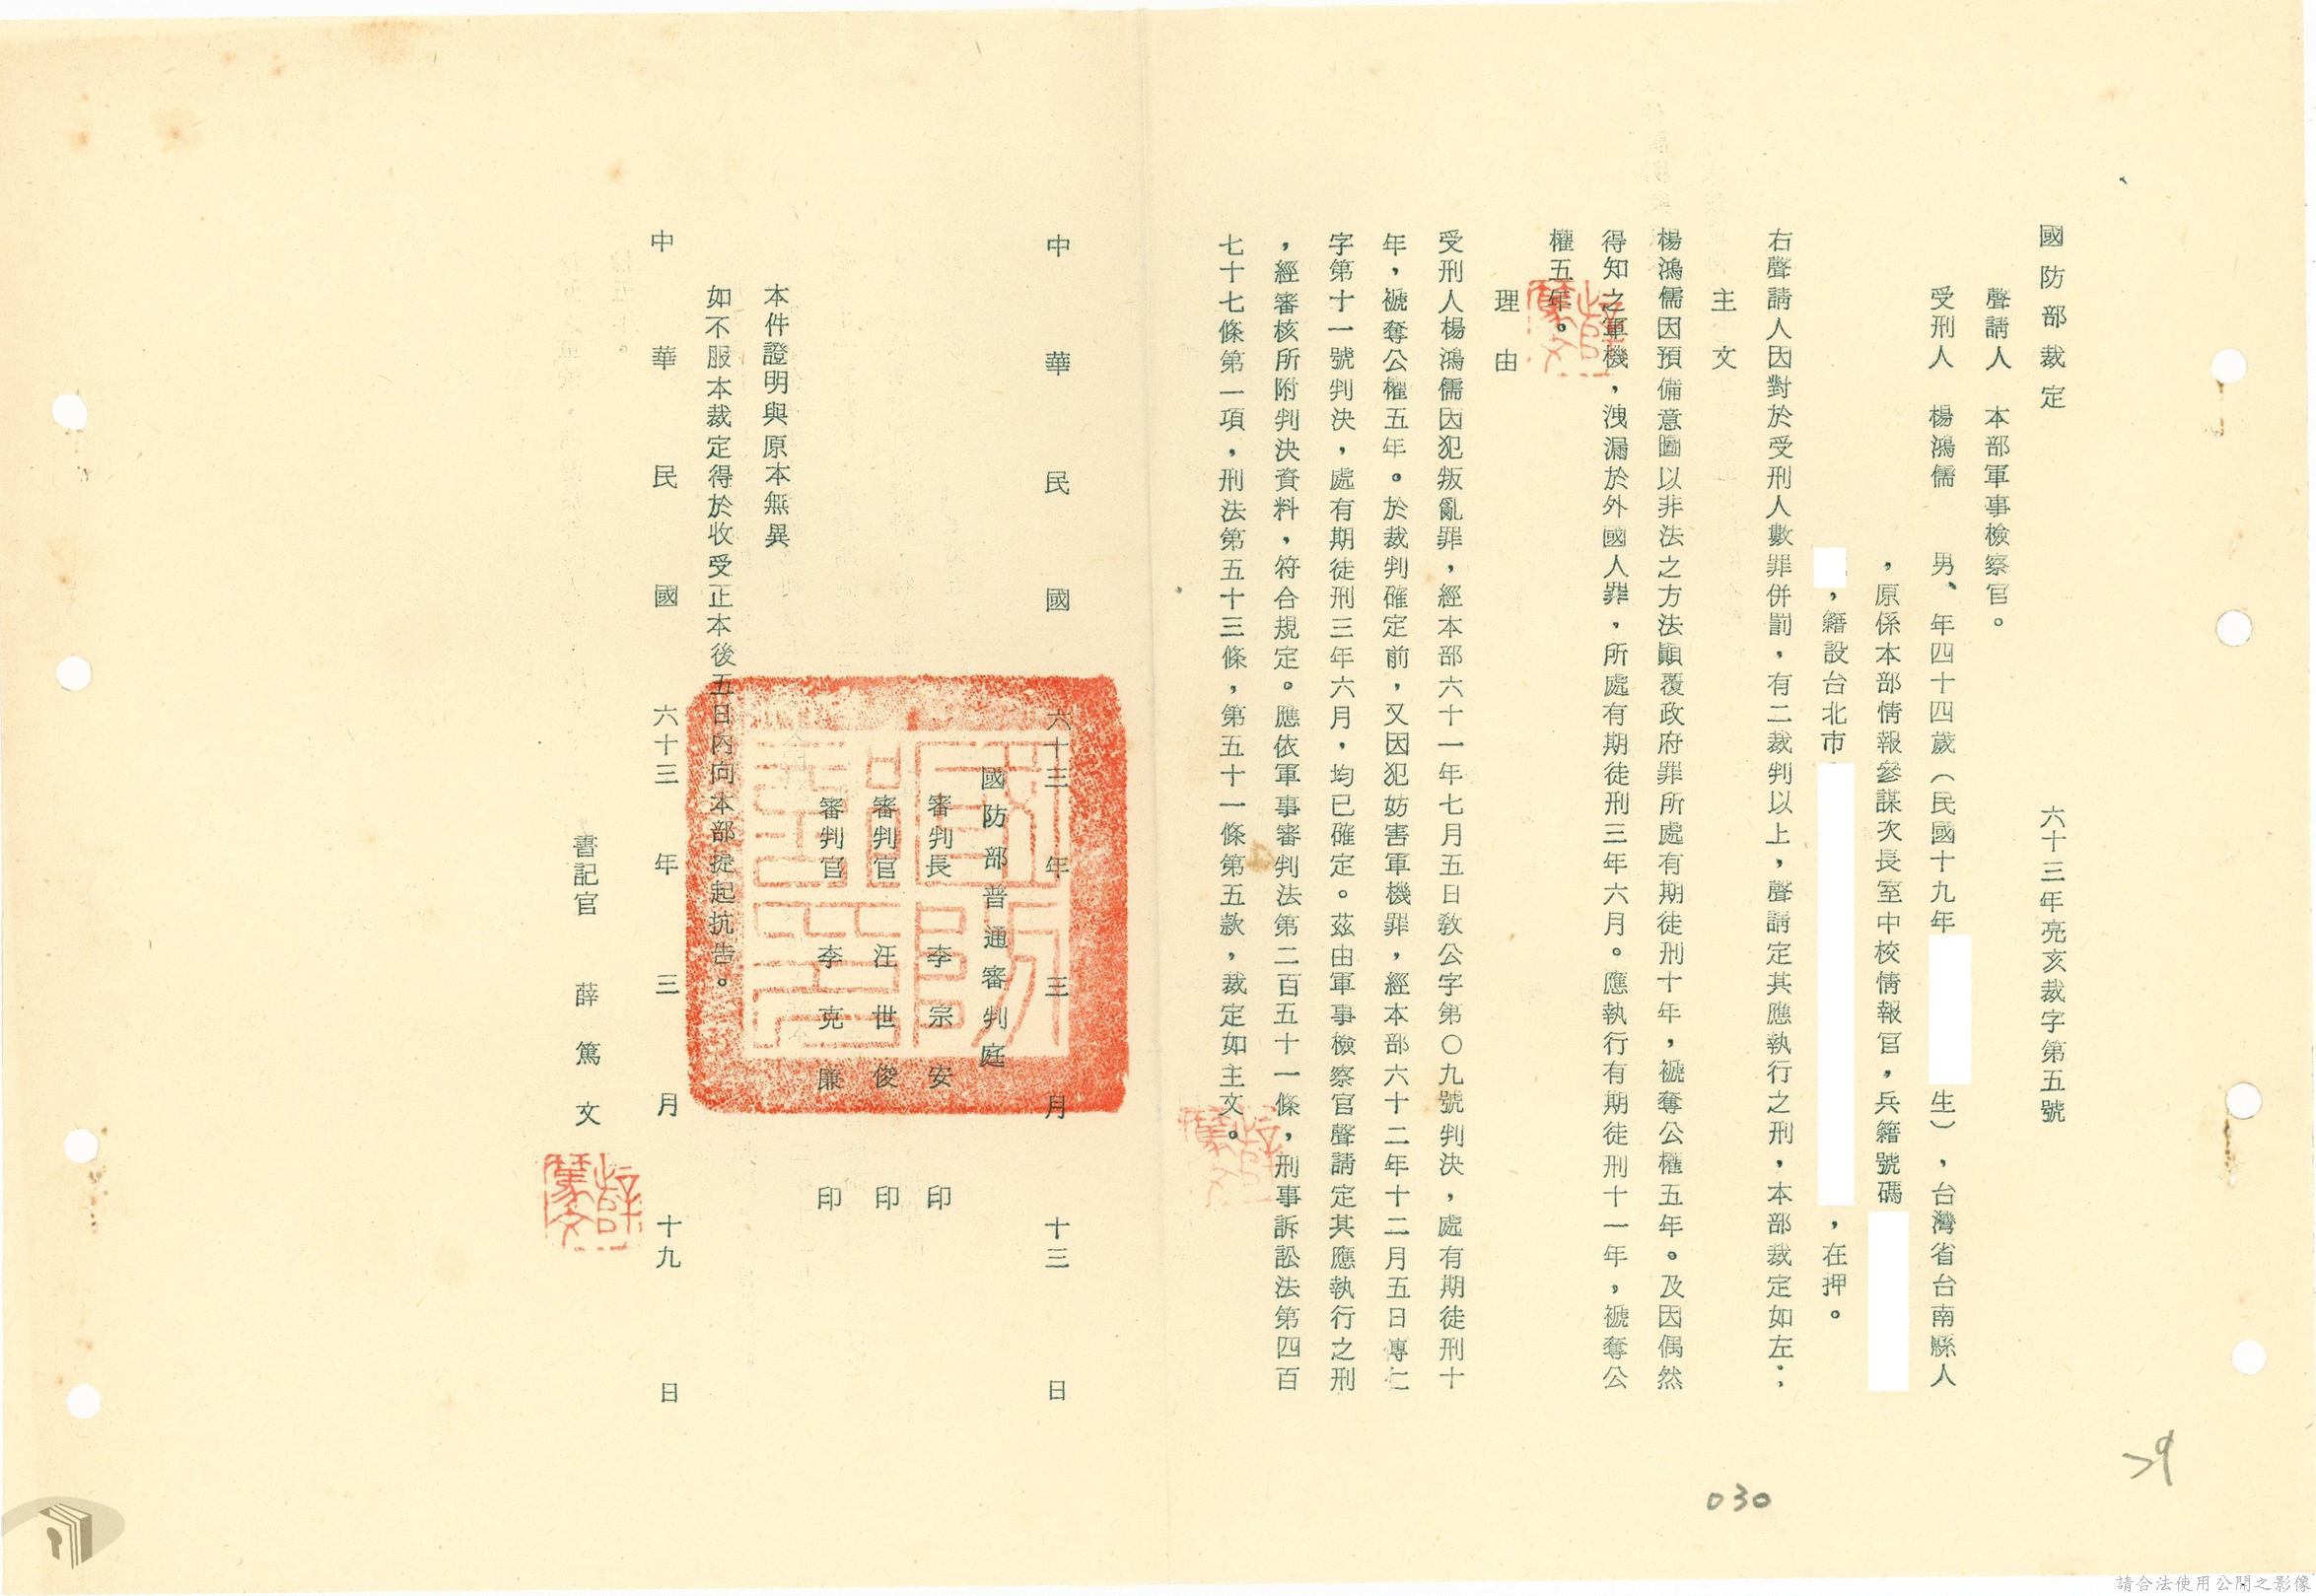 國防部裁定　　六十三年亮亥裁字第五號
聲請人　本部軍事檢察官。
受刑人　楊鴻儒　男、年四十四歲（民國十九年　　　生），台灣省台南縣人
，原係本部情報參謀次長室中校情報官，兵籍號碼
，籍設台北市　　　，在押。
右聲請人因對於受刑人數罪併罰，有二裁判以上，聲請定其應執行之刑，本部裁定如左：
主文
楊鴻儒因預備意圖以非法之方法顛覆政府罪所處有期徒刑十年，褫奪公權五年。及因偶然
得知之軍機，洩漏於外國人罪，所處有期徒刑三年六月。應執行有期徒刑十一年，褫奪公
權五年。
理由
受刑人楊鴻儒因犯叛亂罪，經本部六十一年七月五日敎公字第〇九號判決，處有期徒刑十
年，褫奪公權五年。於裁判確定前，又因犯妨害軍機罪，經本部六十二年十二月五日傳仁
字第十一號判決，處有期徒刑三年六月，均已確定。茲由軍事檢察官聲請定其應執行之刑
，經審核所附判決資料，符合規定。應依軍事審判法第二百五十一條，刑事訴訟法第四百
七十七條第一項，刑法第五十三條，第五十一條第五款，裁定如主文。
中華民國六十三年三月十三日
國防部普通審判庭
審判長　李宗安　印
審判官　汪世俊　印
審判官　李克廉　印
本件證明與原本無異
如不服本裁定得於收受正本後五日內向本部提起抗告。
中華民國六十三年三月十九日
書記官　薛篤文
薛篤文
030
請合法使用公開之影像